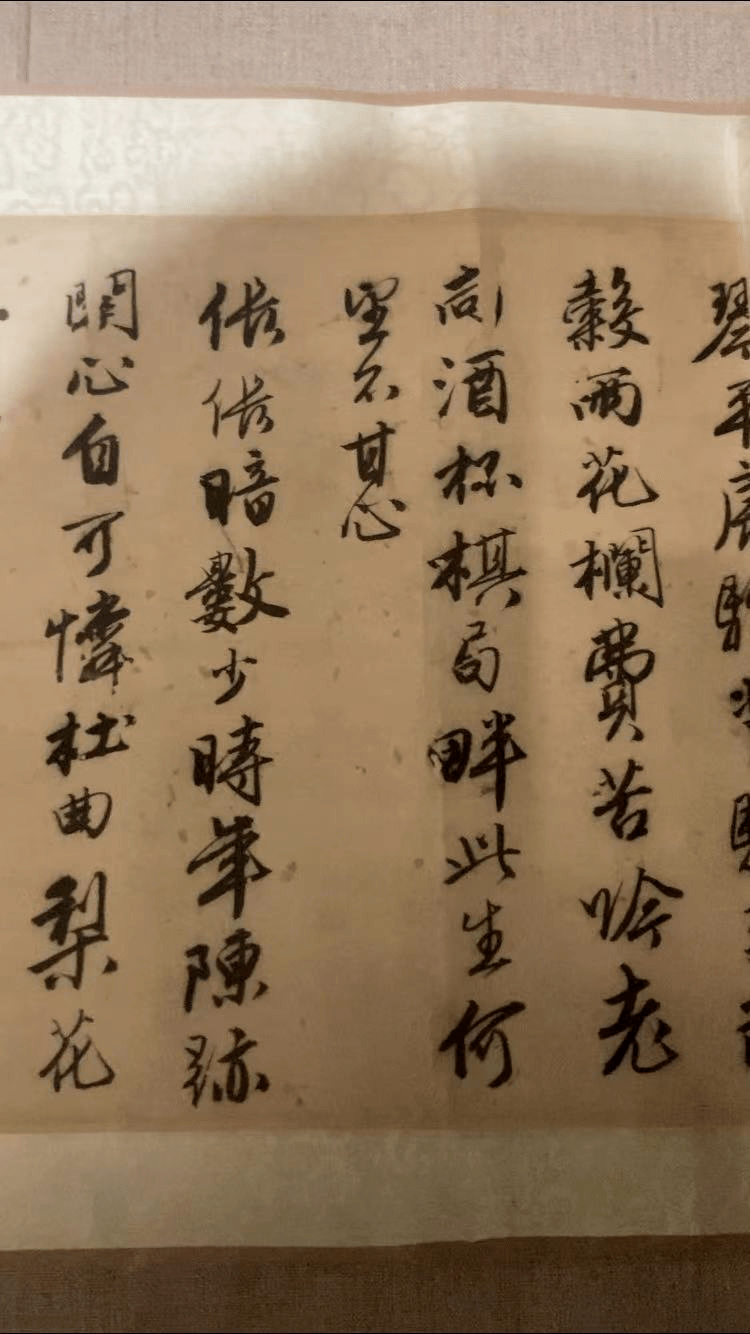 穀雨花欄費苦吟老
向酒杯棋局畔此生何
望不甘心
倀倀暗數少時年陳跡
關心自可憐杜曲梨花